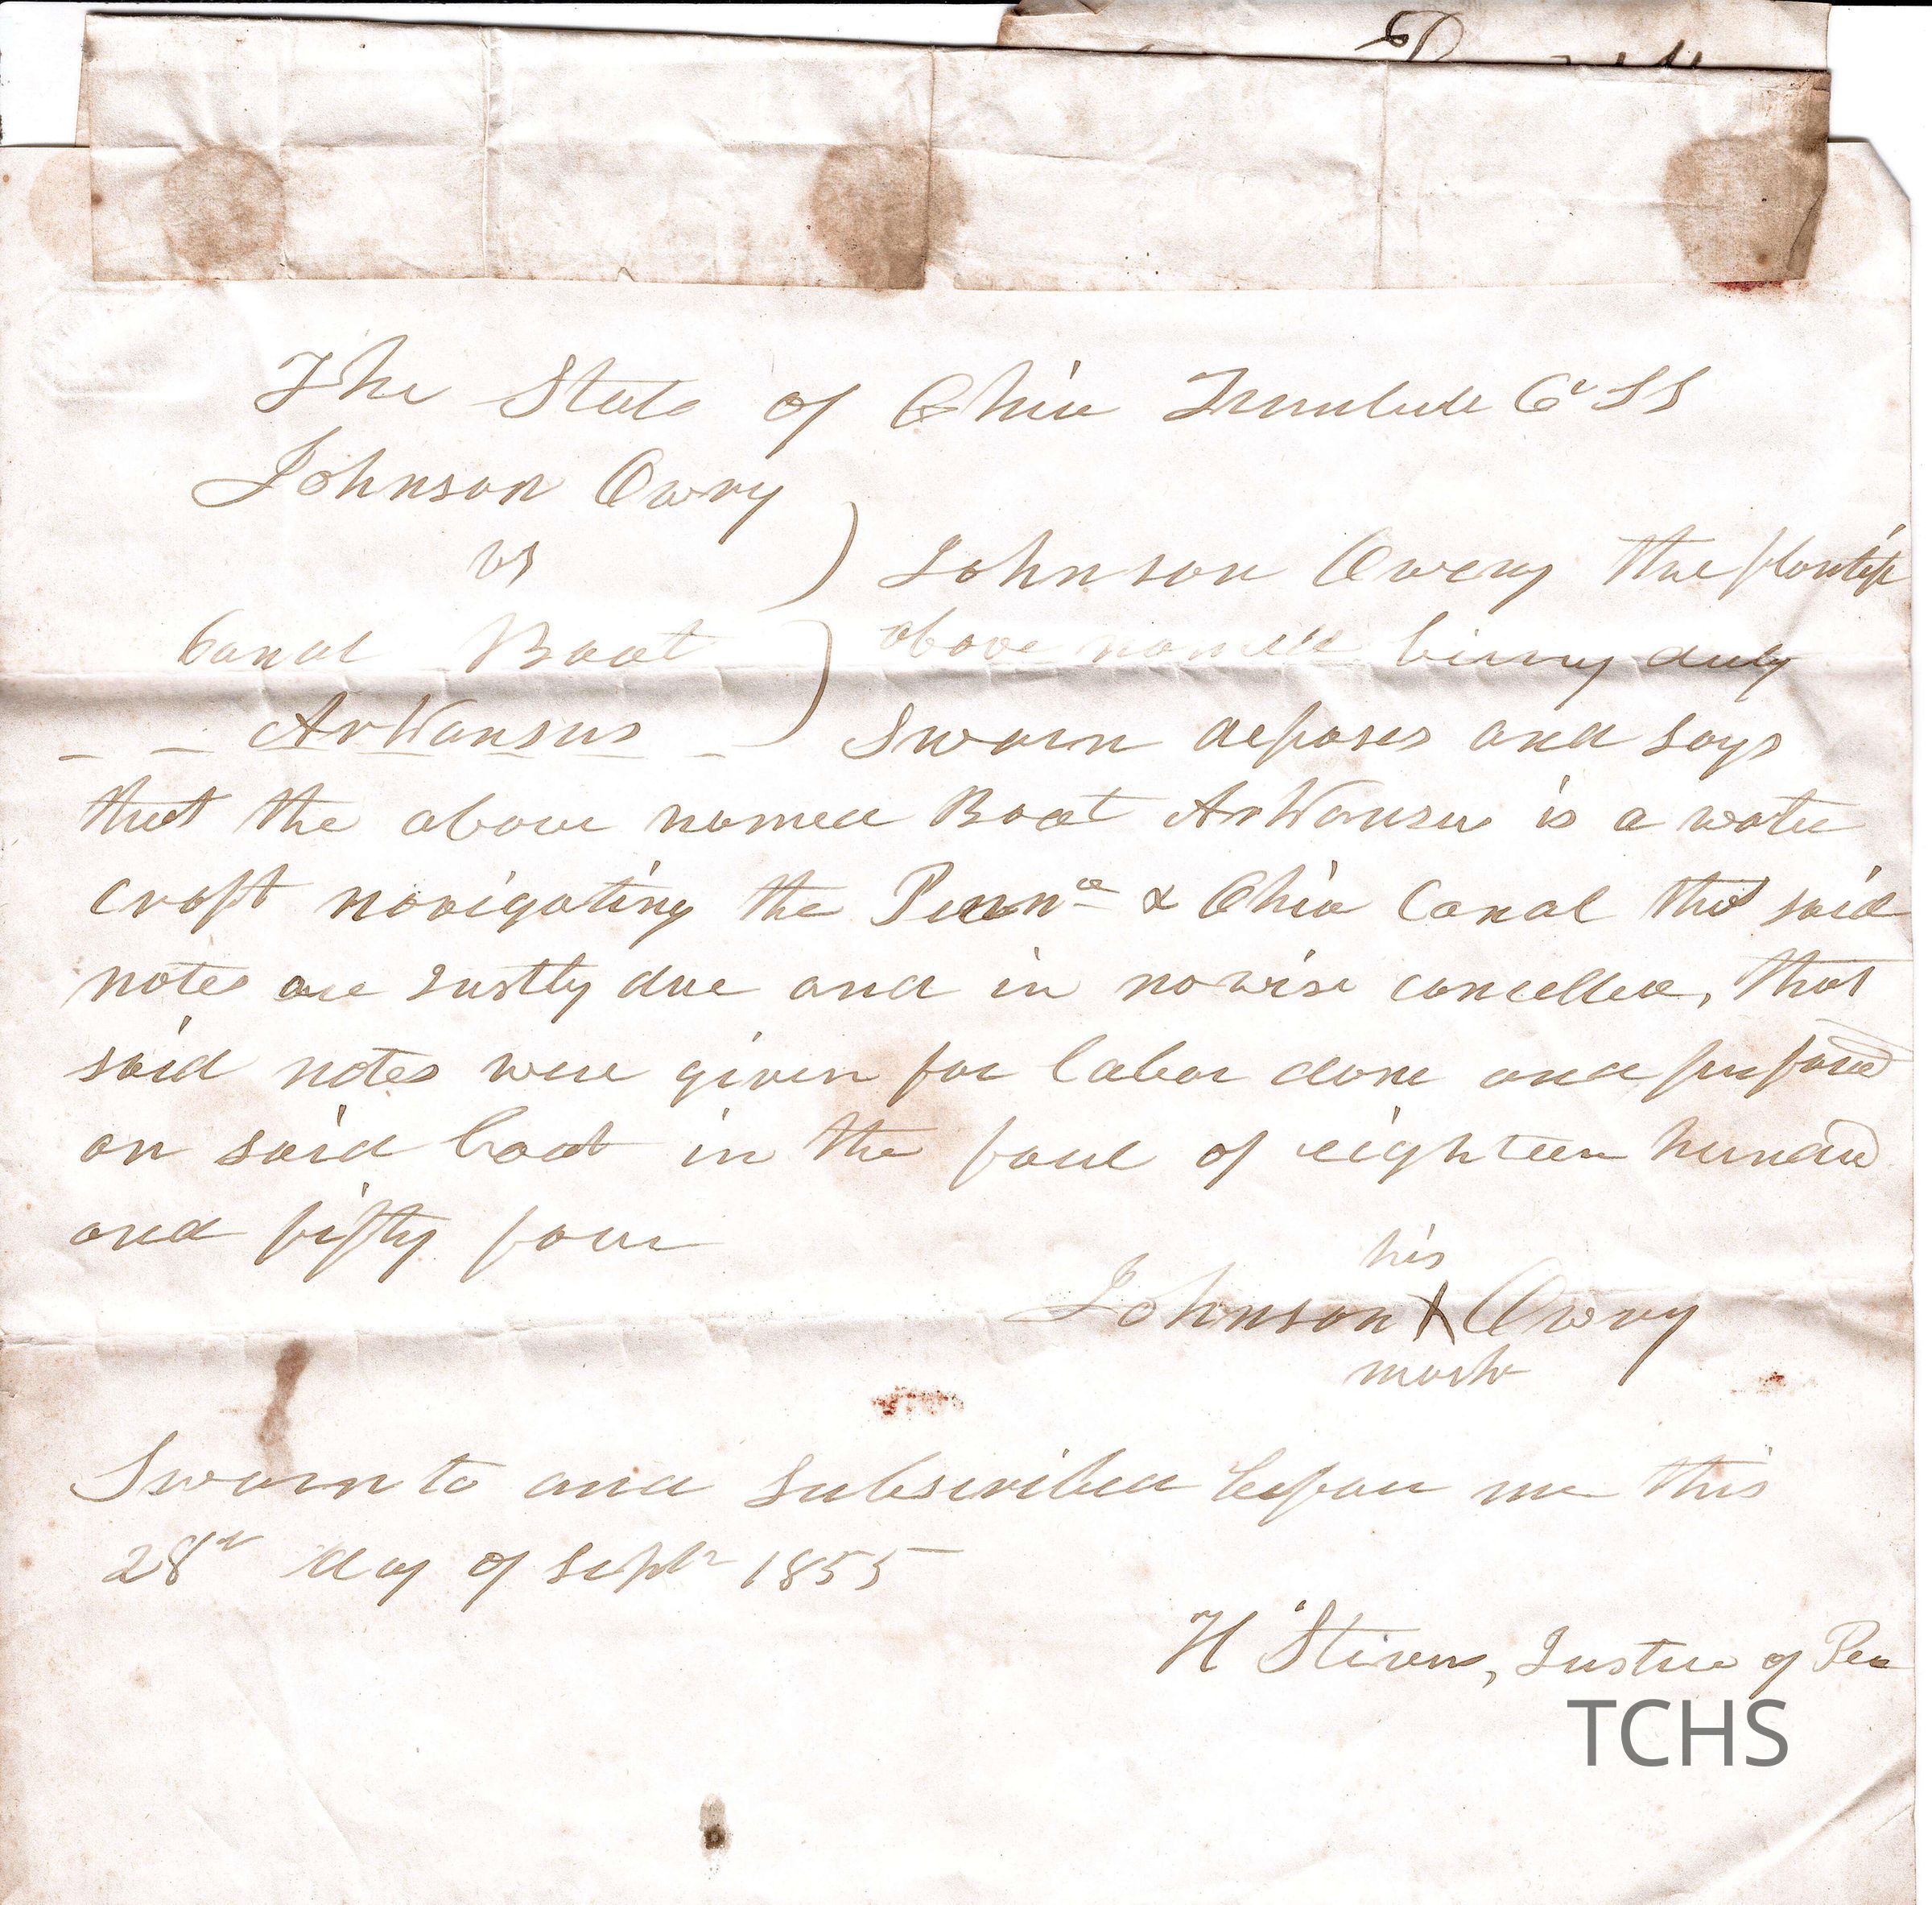 The State of Ohio Trumbull Co SS
Johnson Owry
vs
Johnson Owery the plantiff
Canal Boat
above named being duly
Arkansas
Sworn deposes and says
that the above named Boat Arkansas is a water
craft navigating the Penna & Ohio Canal that said
notes are Justly due and in nowise cancelled, that
said notes were given for labor done and performed
on said boat in the of eighteen hundred
and fifty four
his
Johnson X Owry
mark
Sworn to and Subscribed before me this
28th day of Septr 1855
H Stevens, Justice of Pea
TCHS